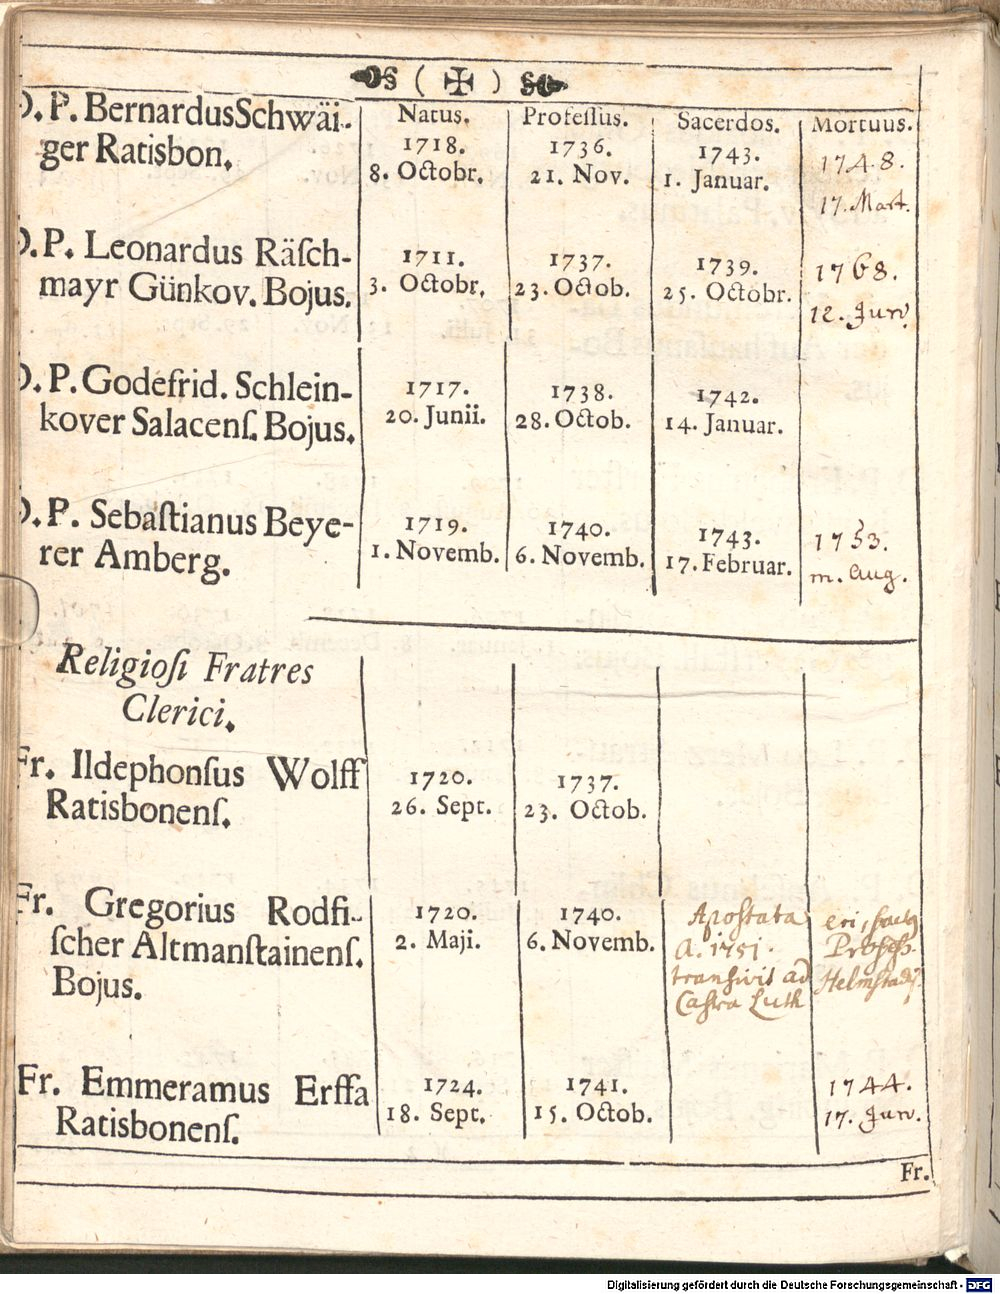 ( ✠ )
Natus. Professus. Sacerdos. Mortuus.
D. P. Bernardus Schwäi-
ger Ratisbon.
1718.
8. Octobr.
1736.
21. Nov.
1743.
1. Januar.
1748.
17. Mart.
D. P. Leonardus Räſch-
mayr Günkov. Bojus.
1711.
3. Octobr.
1737.
23. Octob.
1739.
25. Octobr.
1768.
12. Jun.
D. P. Godefrid. Schlein-
kover Salacenſ. Bojus.
1717.
20. Junii.
1738.
28. Octob.
1742.
14. Januar.
D. P. Sebaſtianus Beye-
rer Amberg.
1719.
1. Novemb.
1740.
6. Novemb.
1743.
17. Februar.
1753.
m. Aug.
Religioſi Fratres
Clerici.
Fr. Ildephonſus Wolff
Ratisbonenſ.
1720.
26. Sept.
1737.
23. Octob.
Fr. Gregorius Rodfi-
ſcher Altmanſtainenſ.
Bojus.
1720.
2. Maji.
1740.
6. Novemb.
Apostata
A. 1751.
transivit ad
Castra Luth
Profess.
Helmstadij
Fr. Emmeramus Erffa
Ratisbonenſ.
1724.
18. Sept.
1741.
15. Octob.
1744.
17. Jun.
Fr.
Digitalisierung gefördert durch die Deutsche Forschungsgemeinschaft - DFG